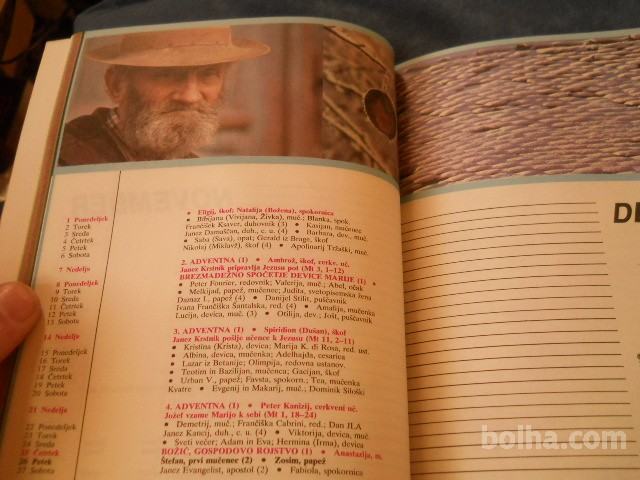 DE
1 Ponedeljek
2 Torek
3 Sreda
4 Četrtek
5 Petek
6 Sobota
7 Nedelja
8 Ponedeljek
9 Torek
10 Sreda
11 Četrtek
12 Petek
13 Sobota
14 Nedelja
15 Ponedeljek
16 Torek
17 Sreda
18 Četrtek
19 Petek
20 Sobota
21 Nedelja
22 Ponedeljek
23 Torek
24 Sreda
25 Četrtek
26 Petek
27 Sobota
• Eligij, škof; Natalija (Božena), spokornica
• Bibijana (Vivijana, Živka), muč.; Blanka, spok.
Frančišek Ksaver, duhovnik (3) • Kasijan, mučenec
Janez Damaščan, duh., c. u. (4) • Barbara, dev., muč.
• Saba (Sava), opat; Gerald iz Brage, škof
Nikolaj (Miklavž), škof (4) • Apolinarij Tržaški, muč.
2. ADVENTNA (1) • Ambrož, škof, cerkv. uč.
Janez Krstnik pripravlja Jezusu pot (Mt 3, 1–12)
BREZMADEŽNO SPOČETJE DEVICE MARIJE (1) •
• Peter Fourier, redovnik; Valerija, muč.; Abel, očak
• Melkijad, papež, mučenec; Judita, svetopisemska žena
Damaz I., papež (4) • Danijel Stilit, puščavnik
Ivana Frančiška Šantalska, red. (4) • Amalija, mučenka
Lucija, devica, muč. (3) • Otilija, dev.; Jošt, puščavnik
3. ADVENTNA (1) • Spiridion (Dušan), škof
Janez Krstnik pošlje učence k Jezusu (Mt 11, 2–11)
• Kristina (Krista), devica; Marija K. di Rosa, red. ust.
• Albina, devica, mučenka; Adelhajda, cesarica
• Lazar iz Betanije; Olimpija, redovna ustanov.
• Teotim in Bazilijan, mučenca; Gacijan, škof
• Urban V., papež; Favsta, spokorn.; Tea, mučenka
Kvatre • Evgenij in Makarij, muč.; Dominik Siloški
4. ADVENTNA (1) • Peter Kanizij, cerkveni uč.
Jožef vzame Marijo k sebi (Mt 1, 18–24)
• Demetrij, muč.; Frančiška Cabrini, red.; Dan JLA
Janez Kancij, duh., c. u. (4) • Viktorija, devica, muč.
• Sveti večer; Adam in Eva; Hermina (Irma), devica
BOŽIČ, GOSPODOVO ROJSTVO (1) • Anastazija, m.
Štefan, prvi mučenec (2) • Zosim, papež
Janez Evangelist, apostol (2) • Fabiola, spokornica
bolha.com